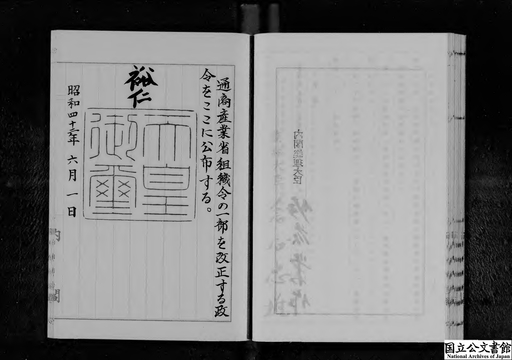 通商産業省組織令の一部を改正する政
令をここに公布する。
裕仁
天皇
御璽
昭和四十三年六月一日
内閣
内閣総理大臣
国立公文書館
National Archives of Japan